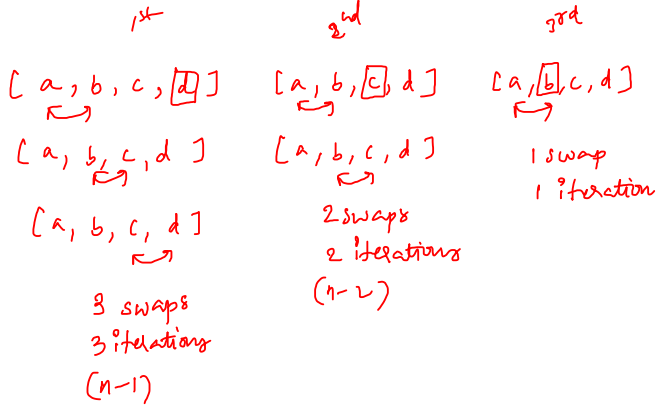 1st
[ a, b, c, d ]
[ a, b, c, d ]
[ a, b, c, d ]
3 swaps
3 iterations
(n-1)
2nd
[ a, b, c, d ]
[ a, b, c, d ]
2 swaps
2 iterations
(n-2)
3rd
[ a, b, c, d ]
1 swap
1 iteration